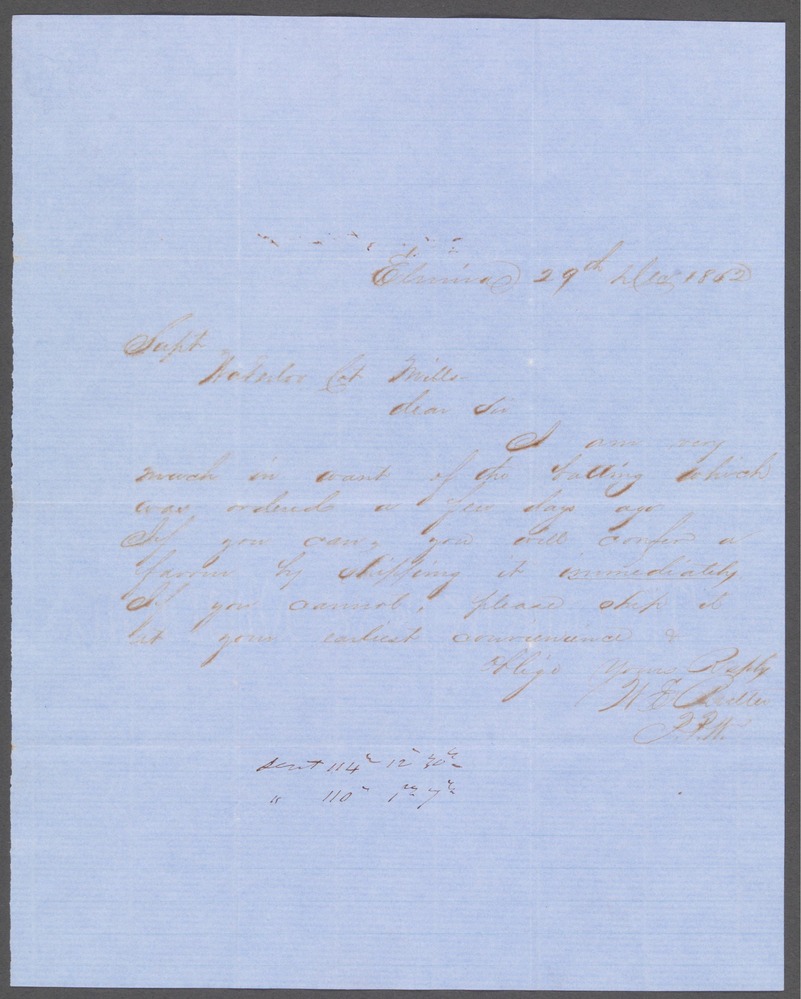 Elmira 29th Dec 1862
Supt
Waterloo Cot Mills
dear Sir
I am very
much in want of the batting which
was ordered a few days ago
If you can, you will confer a
favour by shipping it immediately
If you cannot, please ship it
at your earliest convenience &
oblige Yours Reply
W E
sent 114 12
" 110